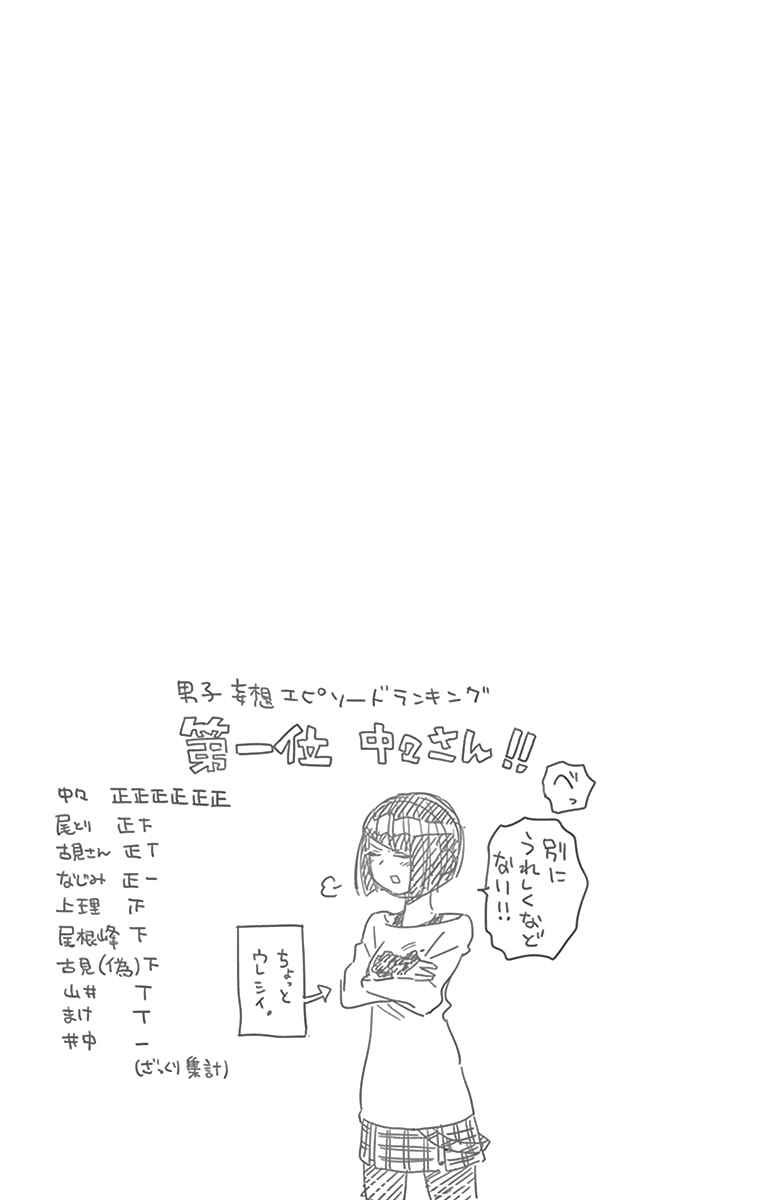 男子妄想エピソードランキング
第一位 中々さん!!
べっ
別に
うれしくなど
ない!!
ちょっと
ウレシイ。
中々 正正正正正正
尾とり 正下
古見さん 正T
なじみ 正一
上理 正
尾根峰 下
古見(偽) 下
山井 T
まけ T
井中 一
(ざっくり集計)